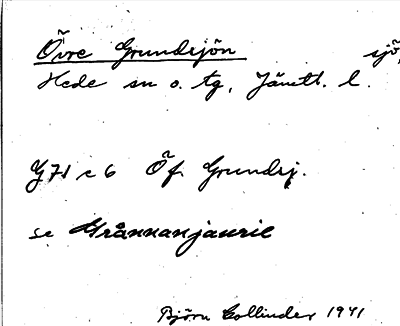 Övre Grundsjön sjö,
Hede sn o. tg, Jämtl. l.
G71 c 6 Öf. Grundsj.
se Grånnanjaurie
Björn Collinder 1941